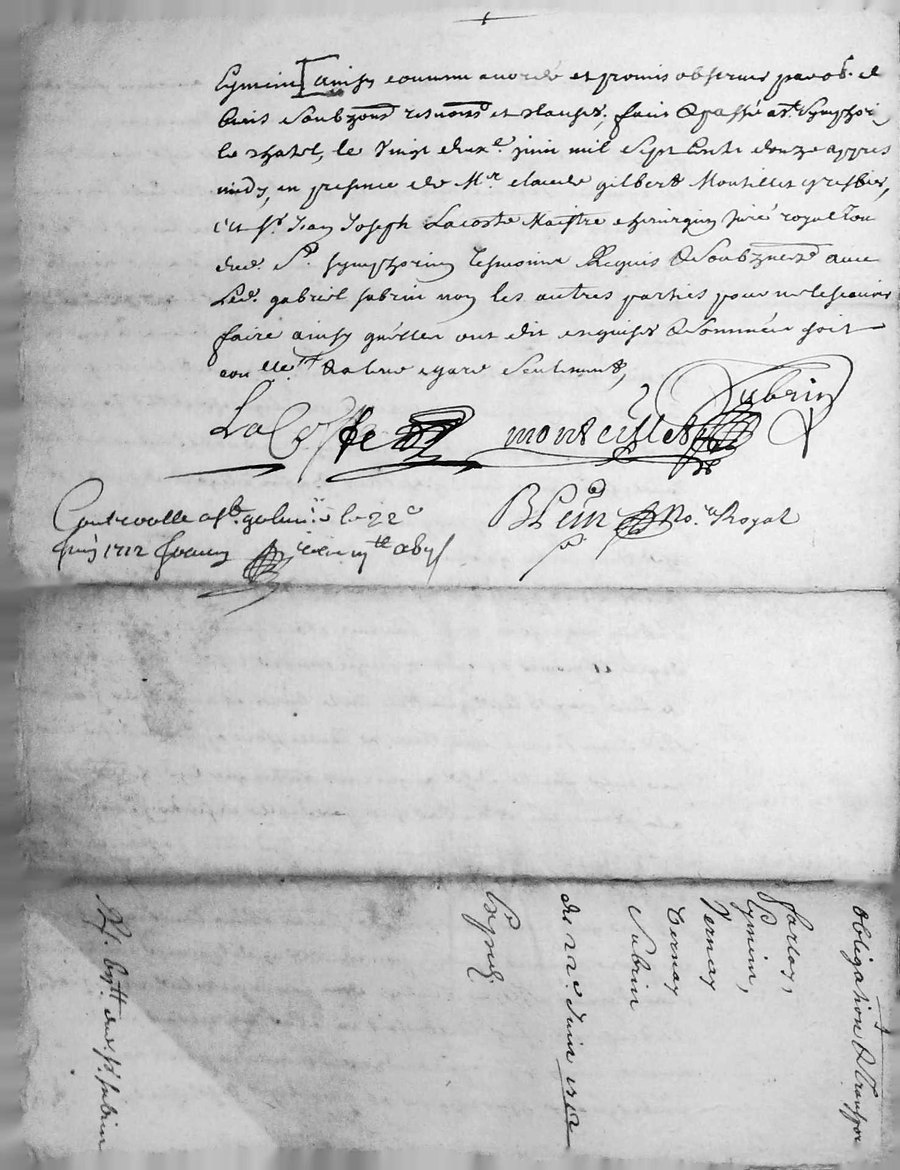 Eymein ainsy comme accordé et promis observer par ob. de
biens soubzons renons et clauses, fait & passé a St. Symphori
le chatel, le vingt deux.e juin mil sept cents douze appres
midy, en presence de Mr. claude gilbert Montillet greffier,
et Sr. Jean Joseph Lacoste Maistre chirurgien juré royal
dud. St. Symphorien tesmoins Requis & Soubznés avec
Led. gabriel subrin non les autres parties pour ne le scavoir
faire ainsy qu'elles ont dit enquises & sommées soit
seulement,
LaCoste monteillet Subrin
Controolle a le 22e
juin 1712
Blein No.re Royal
obligation & transpor
farloy,
Eymein,
Vernay
Vernay
Subrin
du 22e. Juin 1712
Exped.
P. Expt. dud. Sr. subrin